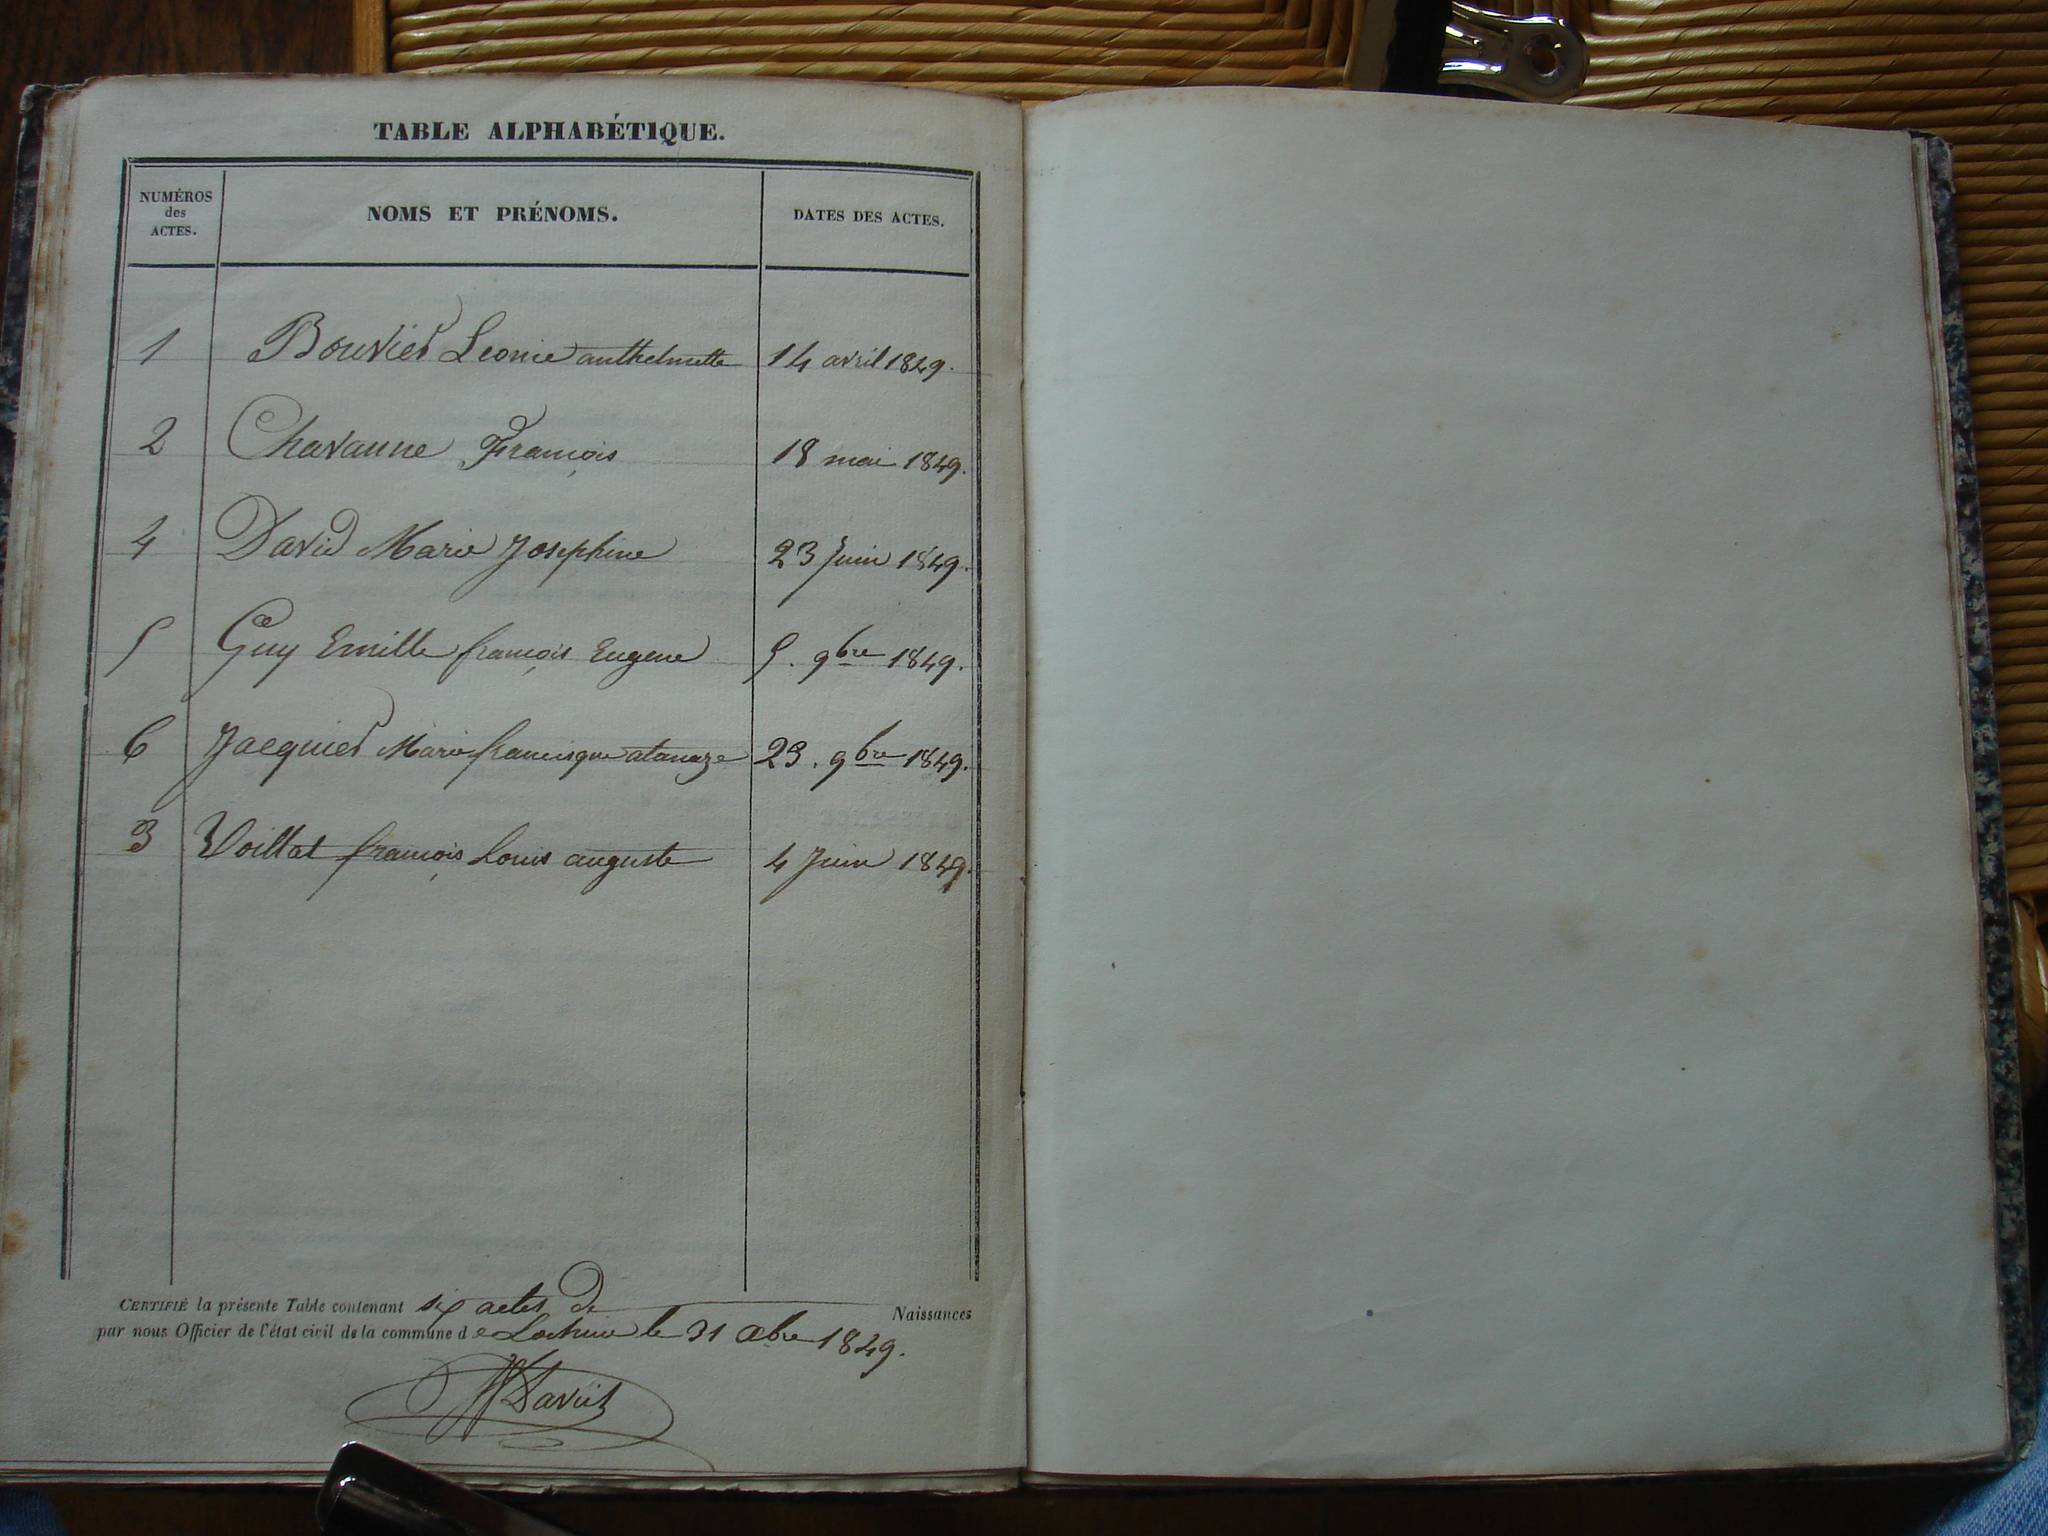 TABLE ALPHABÉTIQUE.
NUMÉROS des ACTES.
NOMS ET PRÉNOMS.
DATES DES ACTES.
1 Bouvier Leonie anthelmette 14 avril 1849.
2 Chavanne François 18 mai 1849.
4 David Marie Josephine 23 Juin 1849.
5 Guy Emille françois Eugene 5. 9bre 1849.
6 Jacquier Marie francisque atanaze 23. 9bre 1849.
3 Voillat françois Louis auguste 4 Juin 1849.
CERTIFIÉ la présente Table contenant six actes de Naissances
par nous Officier de l'état civil de la commune de le 31 Xbre 1849.
David